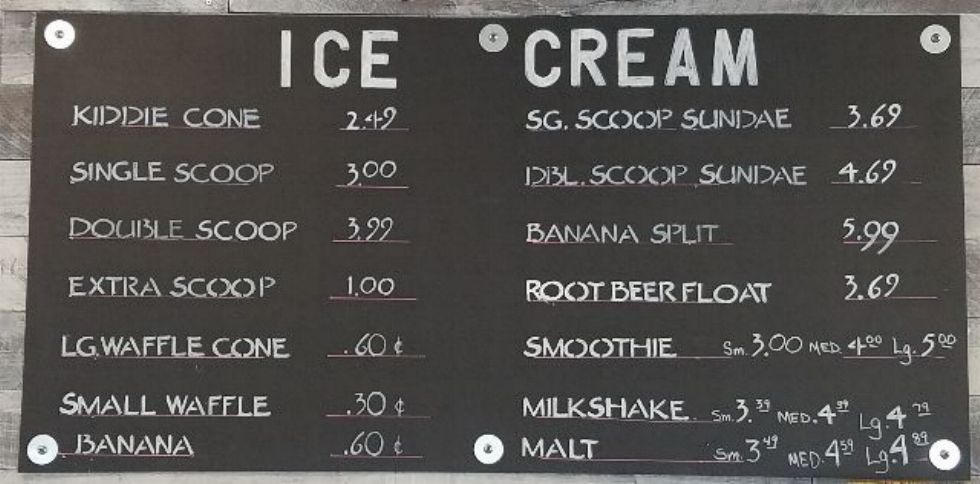 ICE CREAM
KIDDIE CONE 2.49
SINGLE SCOOP 3.00
DOUBLE SCOOP 3.99
EXTRA SCOOP 1.00
LG. WAFFLE CONE .60 ¢
SMALL WAFFLE .30 ¢
BANANA .60 ¢
SG. SCOOP SUNDAE 3.69
DBL. SCOOP SUNDAE 4.69
BANANA SPLIT 5.99
ROOT BEER FLOAT 3.69
SMOOTHIE Sm. 3.00 MED. 4.00 Lg. 5.00
MILKSHAKE Sm. 3.39 MED. 4.39 Lg. 4.79
MALT Sm. 3.49 MED. 4.59 Lg. 4.89